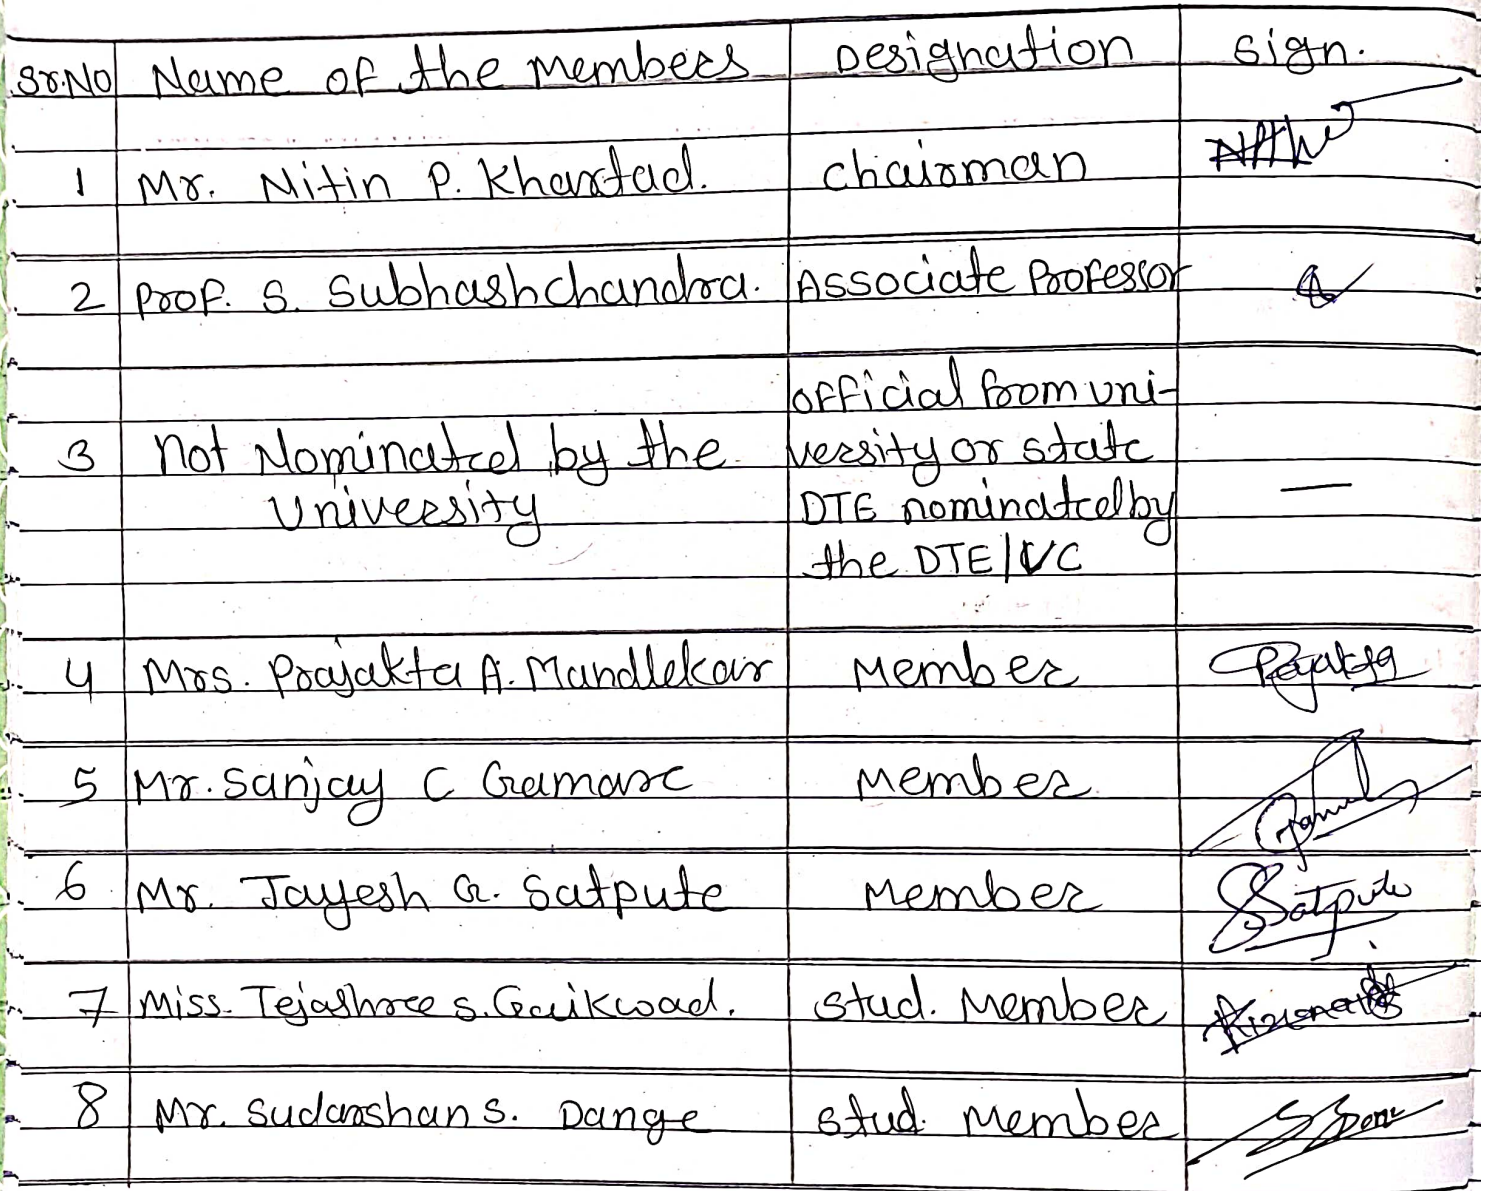 Sr.No Name of the Members Designation Sign.
1 Mr. Nitin P. Khartad. Chairman
2 Prof. S. Subhashchandra. Associate Professor
official from uni-
3 Not Nominated by the versity or state —
University DTE nominated by
the DTE/VC
4 Mrs. Prajakta A. Mandlekar Member Prajakta
5 Mr. Sanjay C Gamare Member
6 Mr. Jayesh G. Satpute Member Satpute
7 Miss. Tejashree S. Gaikwad. Stud. Member
8 Mr. Sudarshan S. Dange Stud. Member